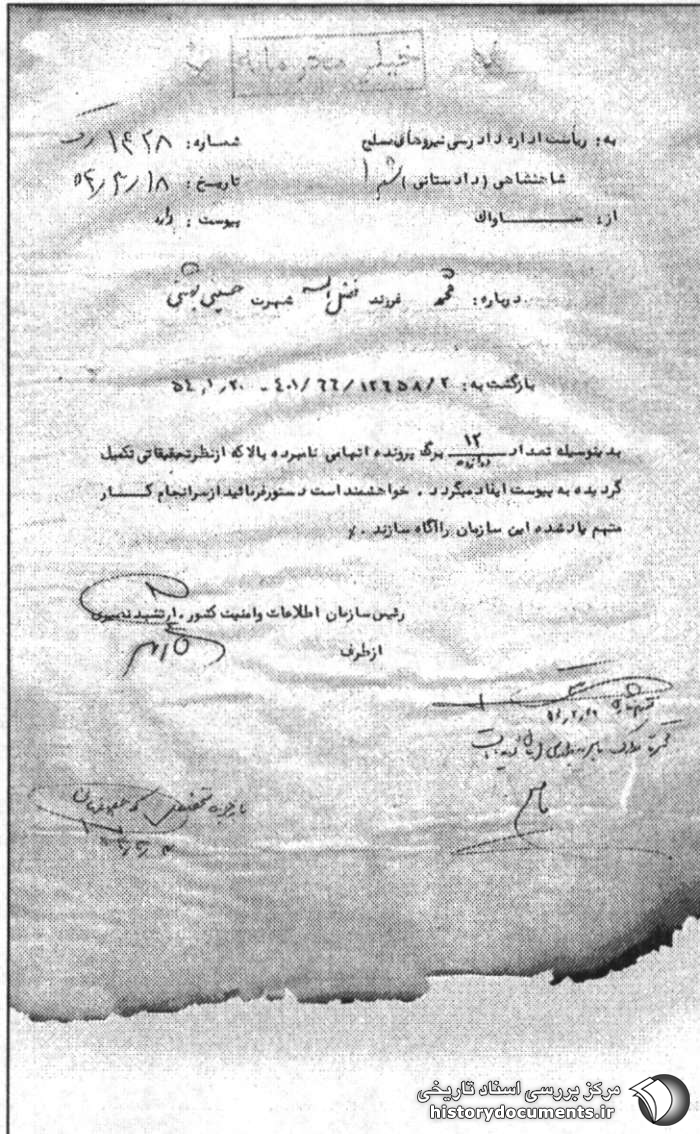 خیلی محرمانه
به: ریاست اداره دادرسی نیروهای مسلح
شاهنشاهی (دادستانی)
از: ســـــاواک
شماره: ۱۴۲۸
تاریخ: ۵۴/۳/۱۸
پیوست: دارد
درباره: محمد فرزند فضل اله شهرت حسینی
بازگشت به: ۴۰۱/۶۶/۱۲۶۵۸/۲ - ۵۴,۱,۲۰
بدینوسیله تعداد ۱۲ دوازده برگ پرونده اتهامی نامبرده بالا که ازنظر تحقیقاتی تکمیل
گردیده به پیوست ایفاد میگردد . خواهشمند است دستورفرمائید ازسرانجام کـــار
متهم یادشده این سازمان را آگاه سازند ./
رئیس سازمان اطلاعات وامنیت کشور . ارتشبد نصیری
ازطرف
مرکز بررسی اسناد تاریخی
historydocuments.ir